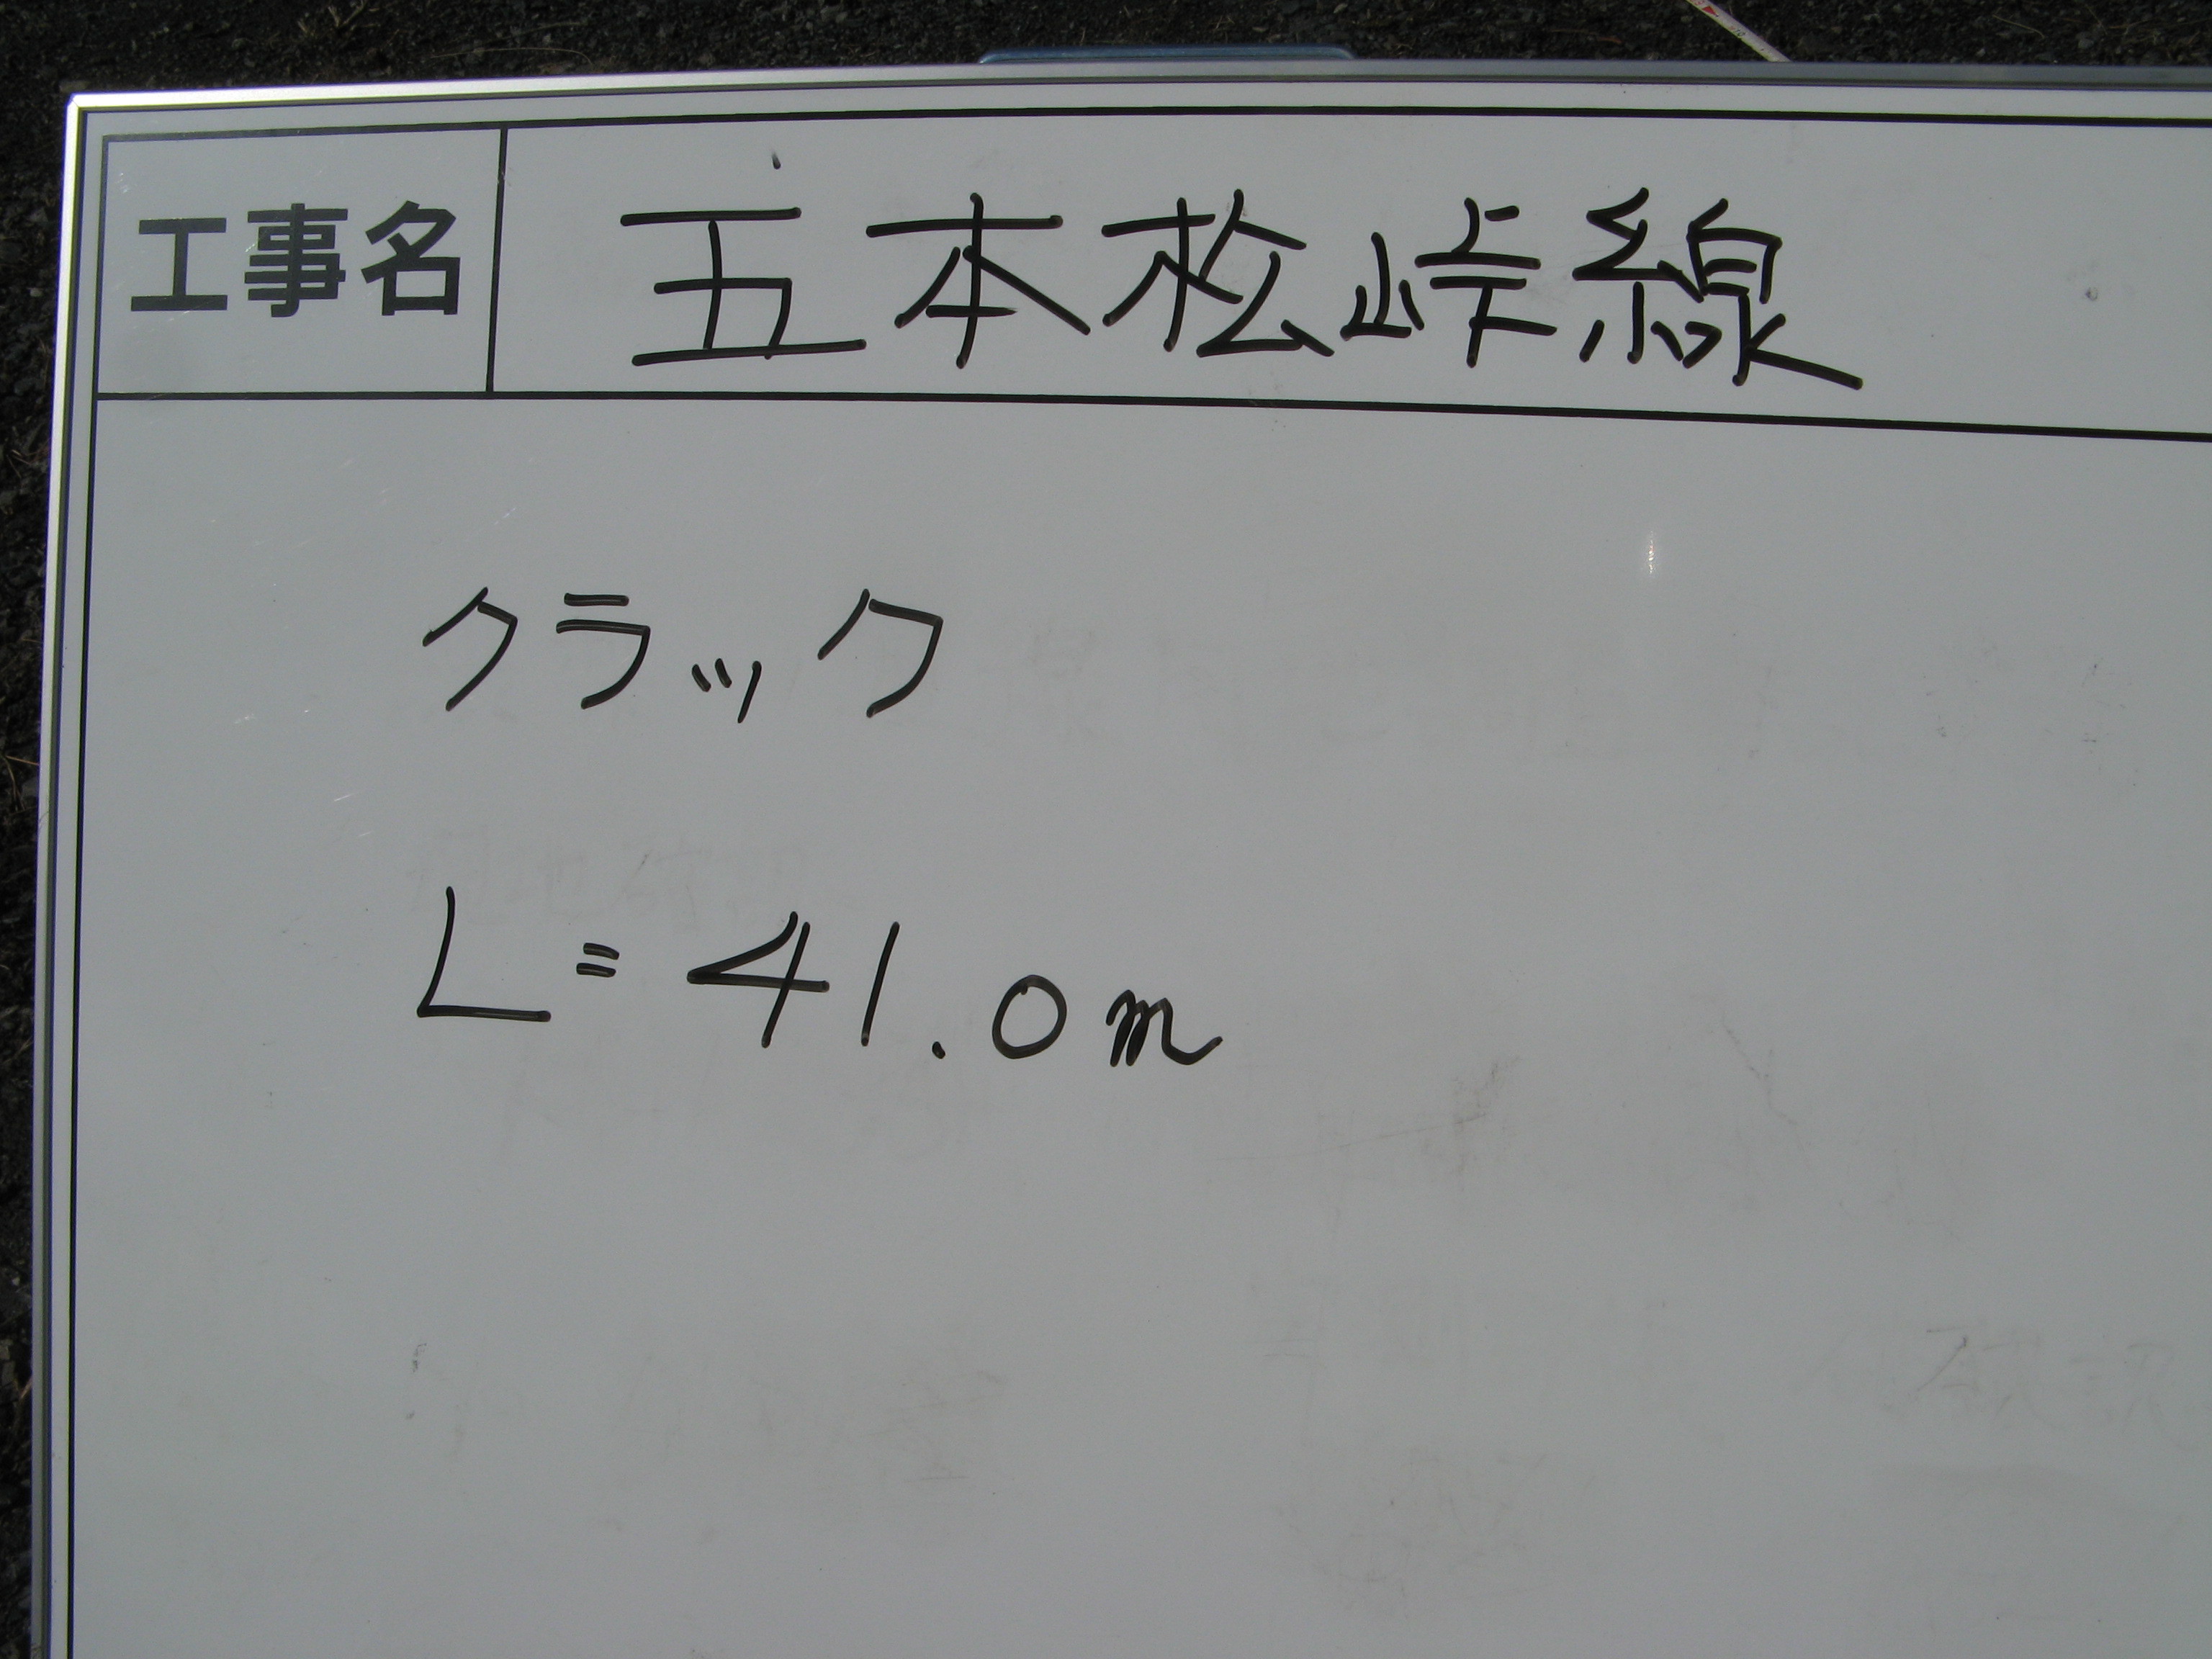 工事名 五本松峠線
クラック
L=41.0m